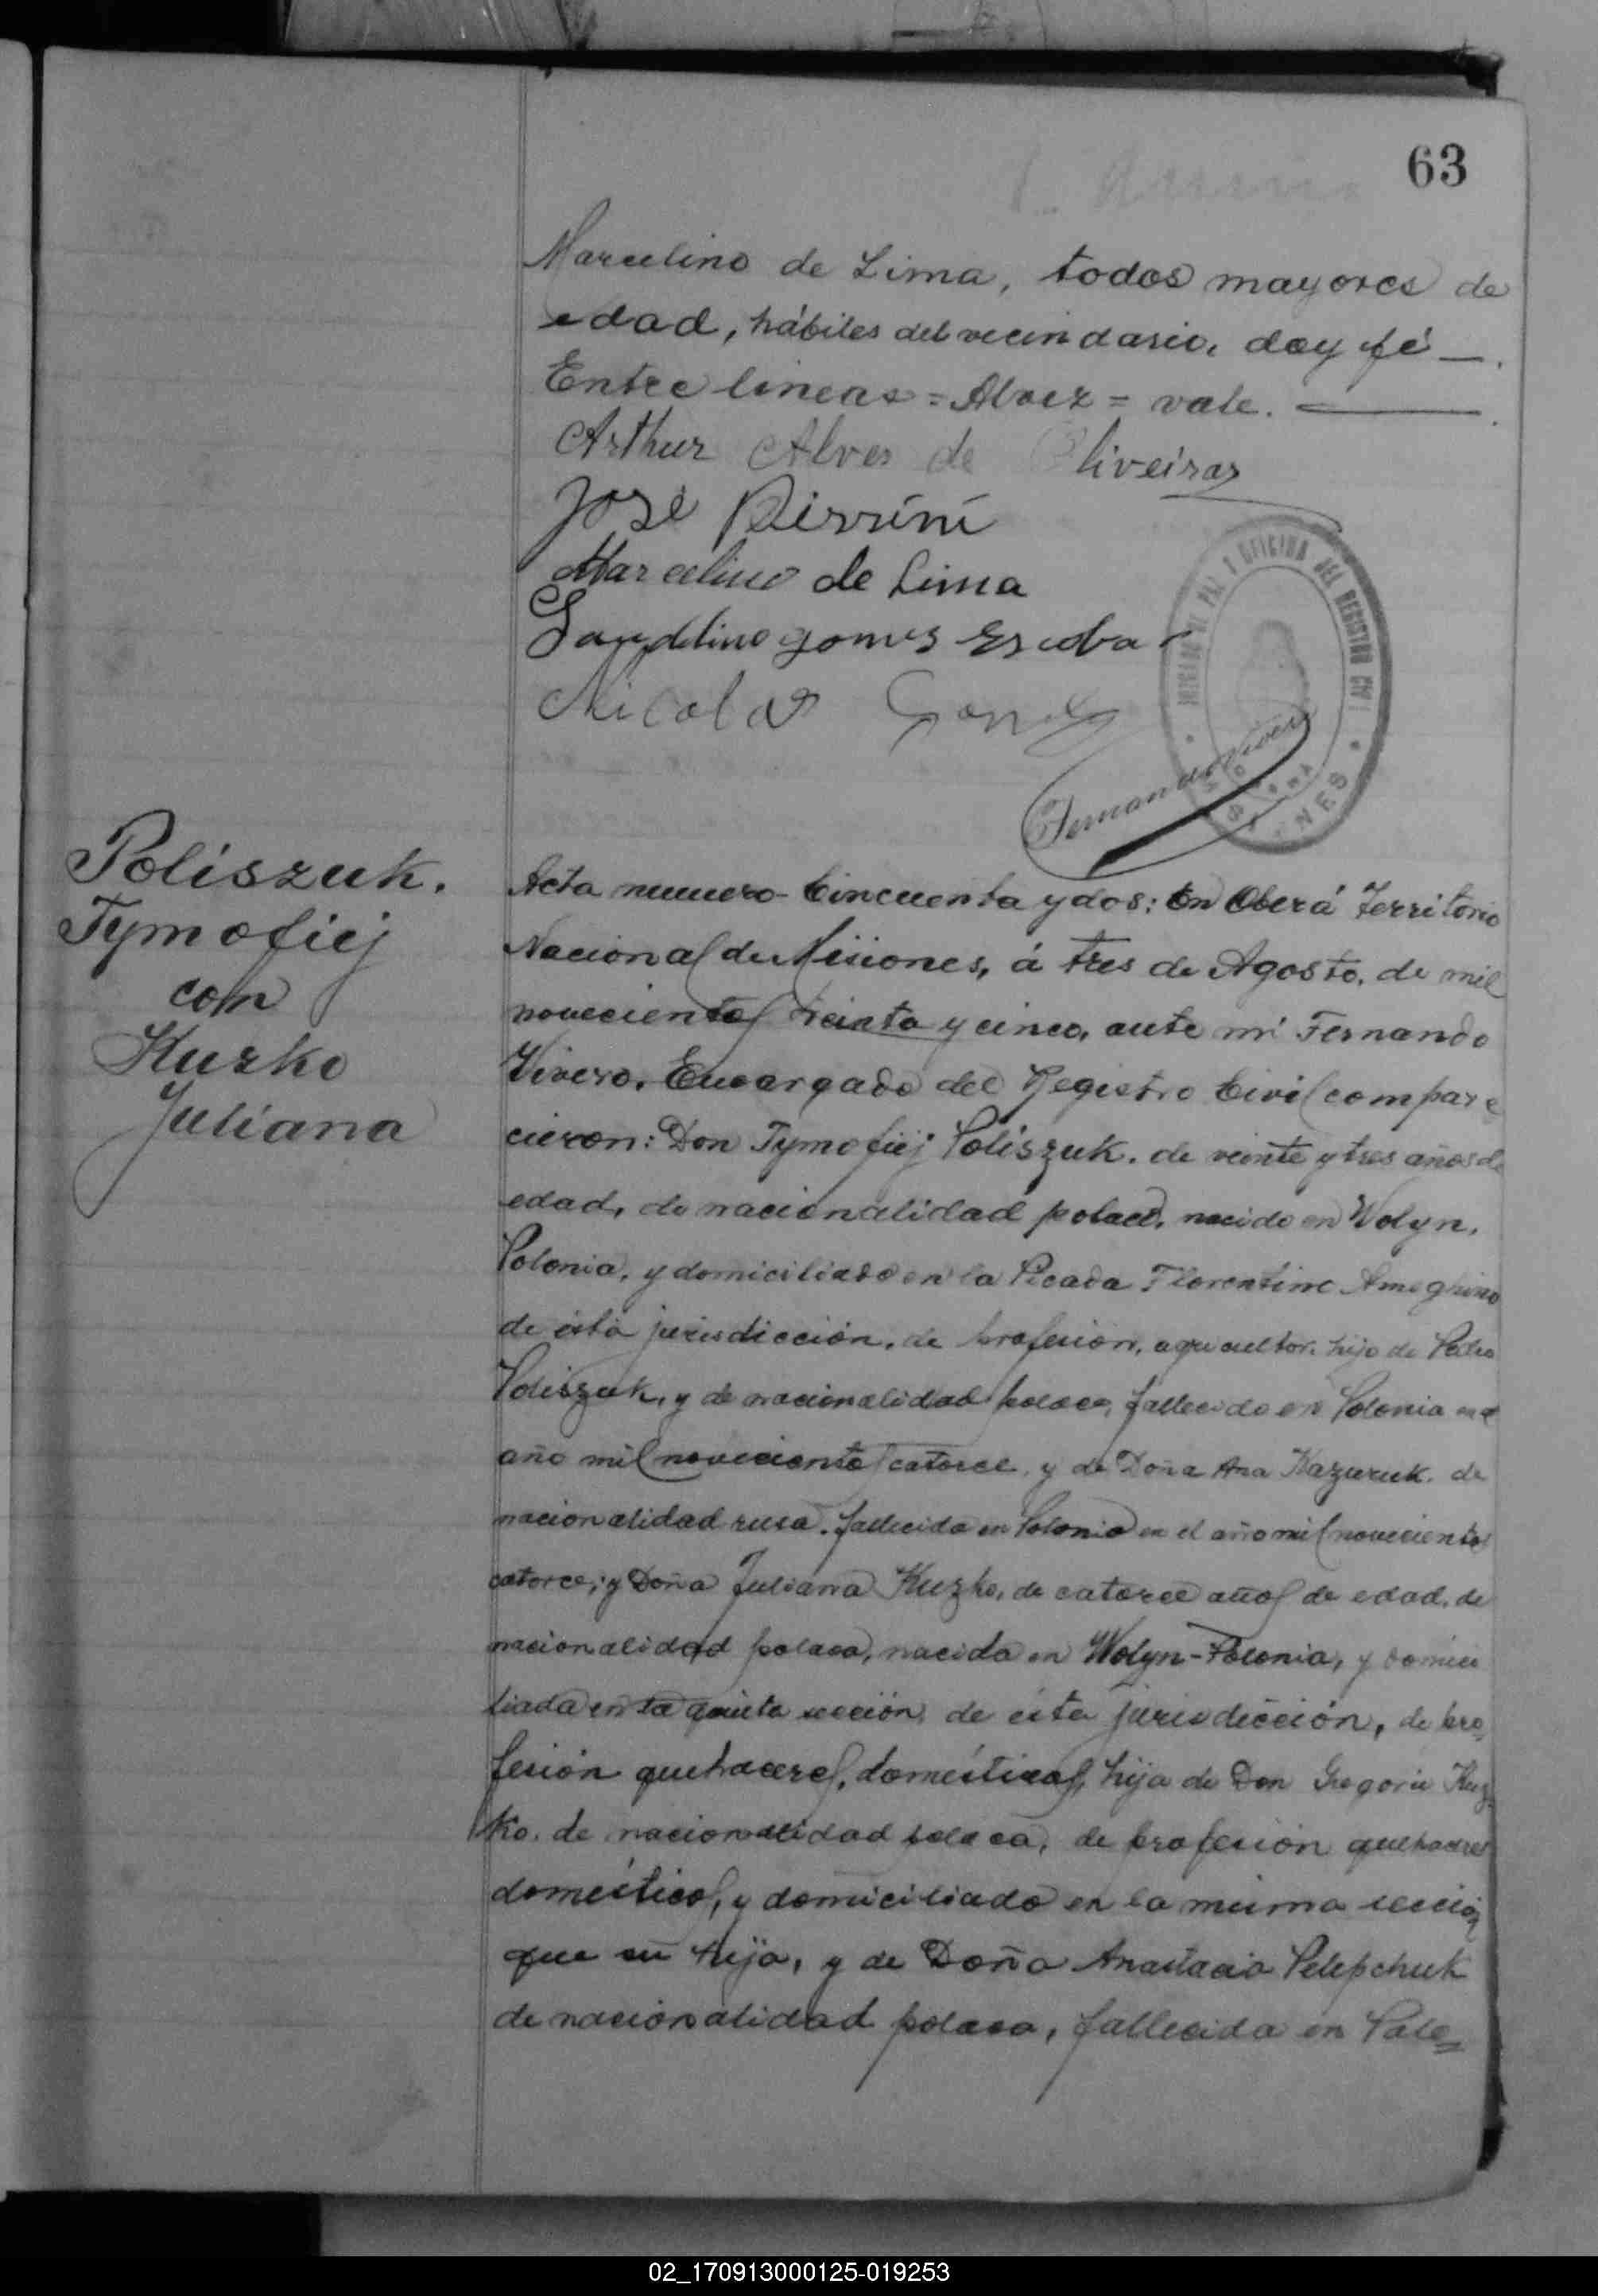 63
Marcelino de Lima, todos mayores de
edad, hábiles del vecindario, doy fé —.
Entre lineas = Alvez = vale. —
Arthur Alves de Oliveira
José
Marcelino de Lima
gomes Escobar
Nicolas Gomes
JUZGADO DE PAZ Y OFICINA DEL REGISTRO CIVIL
MISIONES
Fernando Vivero
Poliszuk.
Tymofiej
con
Kuzko
Juliana
Acta numero Cincuenta y dos: En Oberá Territorio
Nacional de Misiones, á tres de Agosto, de mil
novecientos treinta y cinco, ante mi Fernando
Vivero, Encargado del Registro Civil compare
cieron: Don Tymofiej Poliszuk. de veinte y tres años de
edad, de nacionalidad polaco, nacido en Wolyn,
Polonia, y domiciliado en la Picada Florentino Ameghino
de ésta jurisdicción, de profesion, agricultor, hijo de Pedro
Poliszuk, y de nacionalidad polaco, fallecido en Polonia en el
año mil novecientos catorce, y de Doña Ana Kazuruk. de
nacionalidad rusa. fallecida en Polonia en el año mil novecientos
catorce; y Doña Juliana Kuzko, de catorce años de edad, de
nacionalidad polaca, nacida en Wolyn-Polonia, y domici
liada en la quinta sección, de ésta jurisdicción, de pro-
fesión quehaceres, domésticos, hija de Don Gregorio Kuz-
ko. de nacionalidad polaca, de profesión quehaceres
domésticos, y domiciliado en la misma sección
que su hija, y de Doña Anastacia Pelepchuk
de nacionalidad polaca, fallecida en Polo=
02_170913000125-019253